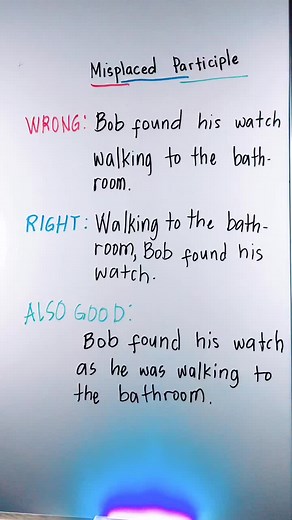 Misplaced Participle
WRONG: Bob found his watch
walking to the bath-
room.
RIGHT: Walking to the bath-
room, Bob found his
watch.
ALSO GOOD:
Bob found his watch
as he was walking to
the bathroom.